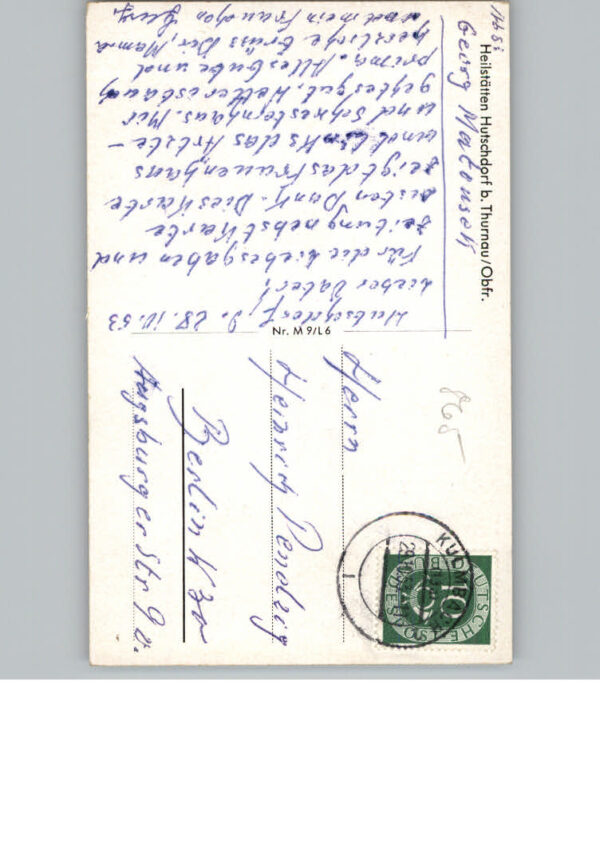 Heilstätten Hutschdorf b. Thurnau/Obfr.
Georg Matousek
Hutschdorf, d. 28.10.53
Lieber Vater!
Für die Liebesgaben und
Zeitung nebst Karte
besten Dank. Dies Karte
zeigt das Frauenhaus
und links das Ärzte-
und Schwesternhaus. Mir
geht es gut. Wetter ist auch
prima. Alles Gute und
herzliche Grüße Dir, Mama
und mein Frauchen
Nr. M9/L6
Herrn
Heinrich Pendzig
Berlin W 30
Augsburger Str 9 v.
865
KULMBACH
DEUTSCHE BUNDESPOST
10